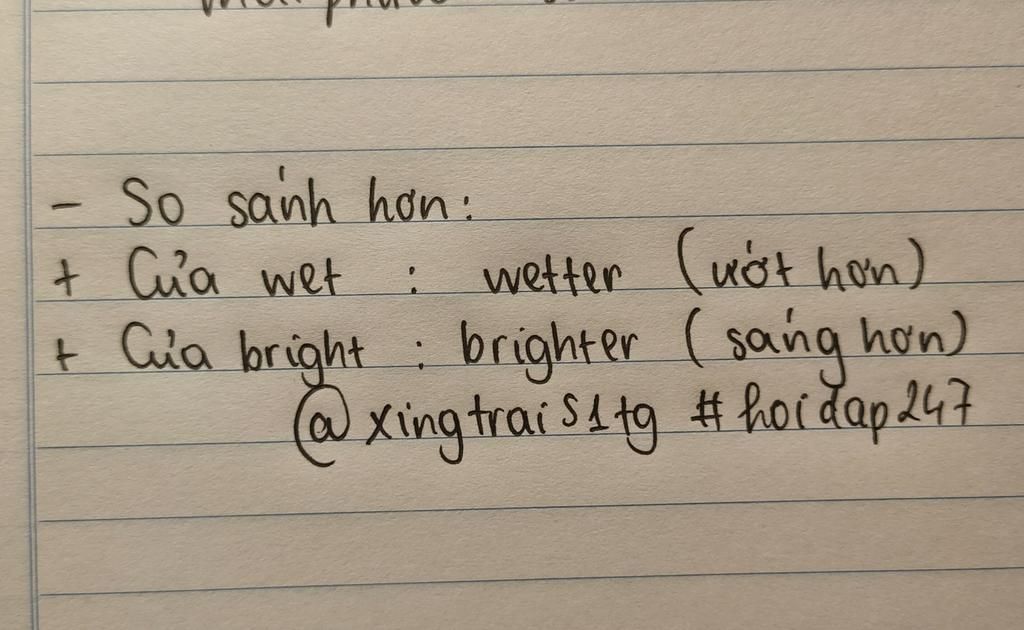 - So sánh hơn:
+ Của wet : wetter (ướt hơn)
+ Của bright : brighter (sáng hơn)
@xingtraiS1tg #hoidap247